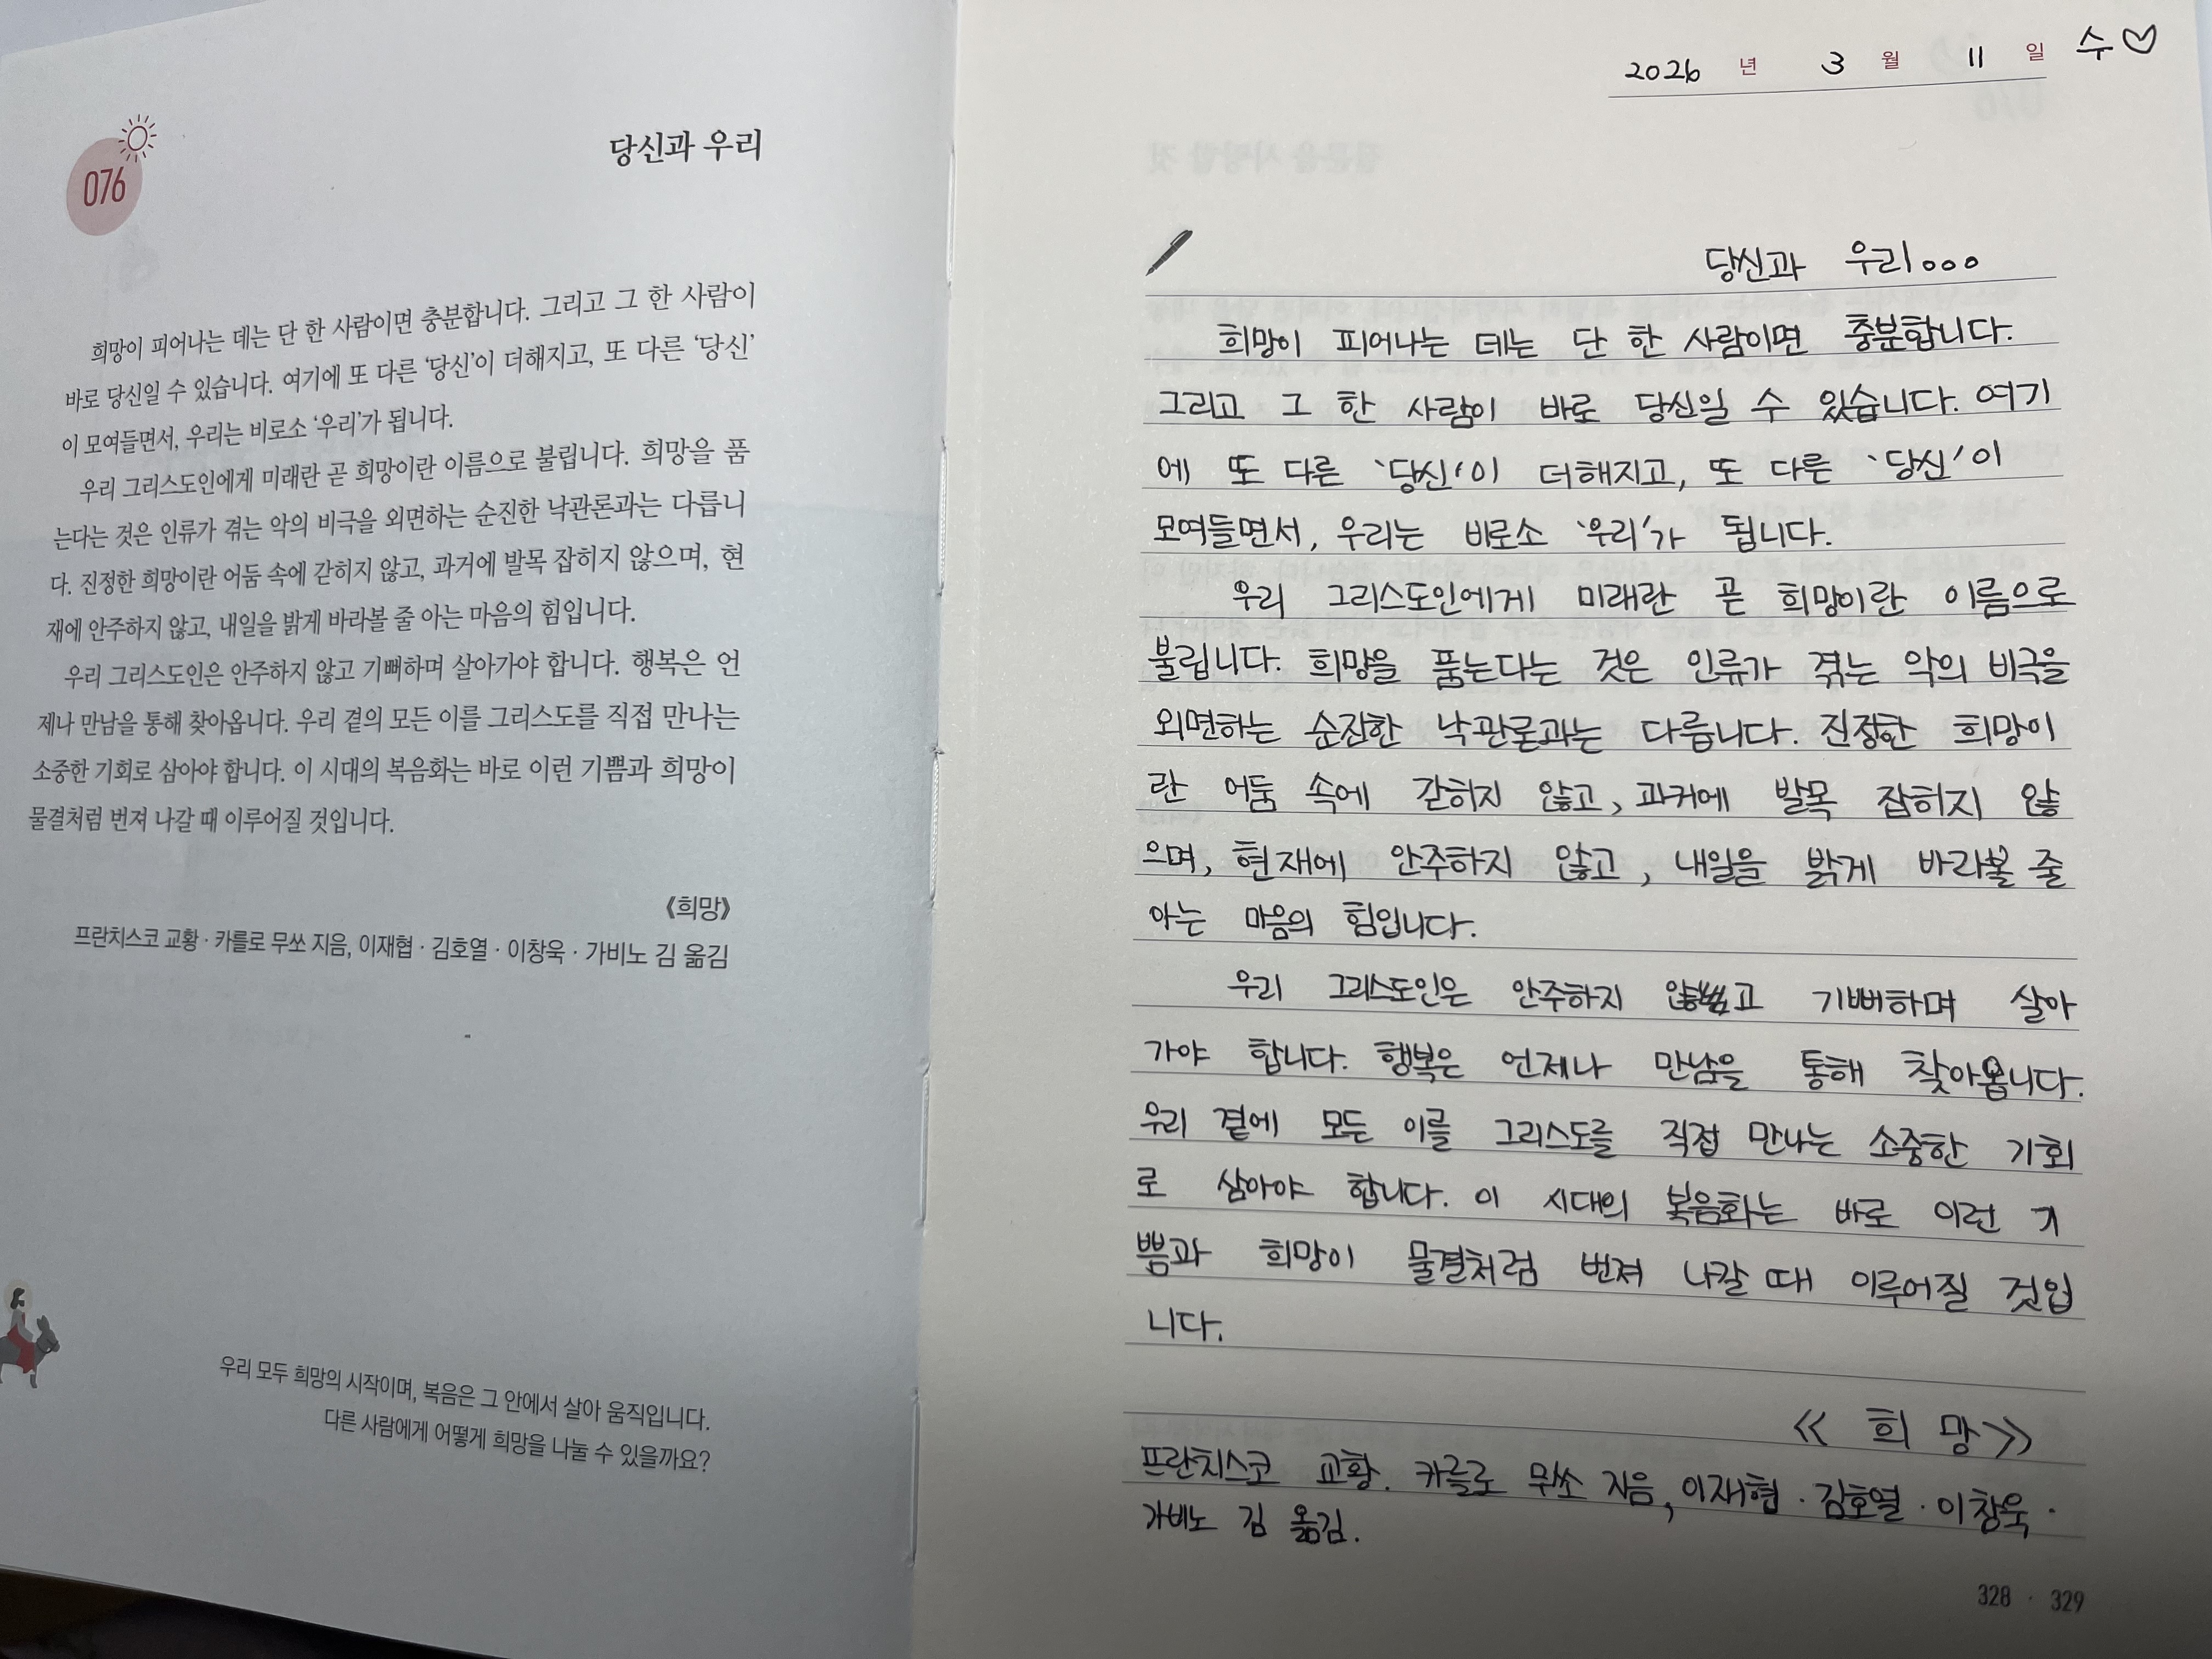 076
당신과 우리
희망이 피어나는 데는 단 한 사람이면 충분합니다. 그리고 그 한 사람이
바로 당신일 수 있습니다. 여기에 또 다른 ‘당신’이 더해지고, 또 다른 ‘당신’
이 모여들면서, 우리는 비로소 ‘우리’가 됩니다.
우리 그리스도인에게 미래란 곧 희망이란 이름으로 불립니다. 희망을 품
는다는 것은 인류가 겪는 악의 비극을 외면하는 순진한 낙관론과는 다릅니
다. 진정한 희망이란 어둠 속에 갇히지 않고, 과거에 발목 잡히지 않으며, 현
재에 안주하지 않고, 내일을 밝게 바라볼 줄 아는 마음의 힘입니다.
우리 그리스도인은 안주하지 않고 기뻐하며 살아가야 합니다. 행복은 언
제나 만남을 통해 찾아옵니다. 우리 곁의 모든 이를 그리스도를 직접 만나는
소중한 기회로 삼아야 합니다. 이 시대의 복음화는 바로 이런 기쁨과 희망이
물결처럼 번져 나갈 때 이루어질 것입니다.
《희망》
프란치스코 교황 · 카를로 무쏘 지음, 이재협 · 김호열 · 이창욱 · 가비노 김 옮김
우리 모두 희망의 시작이며, 복음은 그 안에서 살아 움직입니다.
다른 사람에게 어떻게 희망을 나눌 수 있을까요?
2026 년 3 월 11 일 수♡
당신과 우리...
희망이 피어나는 데는 단 한 사람이면 충분합니다.
그리고 그 한 사람이 바로 당신일 수 있습니다. 여기
에 또 다른 ‘당신’이 더해지고, 또 다른 ‘당신’이
모여들면서, 우리는 비로소 ‘우리’가 됩니다.
우리 그리스도인에게 미래란 곧 희망이란 이름으로
불립니다. 희망을 품는다는 것은 인류가 겪는 악의 비극을
외면하는 순진한 낙관론과는 다릅니다. 진정한 희망이
란 어둠 속에 갇히지 않고, 과거에 발목 잡히지 않
으며, 현재에 안주하지 않고, 내일을 밝게 바라볼 줄
아는 마음의 힘입니다.
우리 그리스도인은 안주하지 않고 기뻐하며 살아
가야 합니다. 행복은 언제나 만남을 통해 찾아옵니다.
우리 곁에 모든 이를 그리스도를 직접 만나는 소중한 기회
로 삼아야 합니다. 이 시대의 복음화는 바로 이런 기
쁨과 희망이 물결처럼 번져 나갈 때 이루어질 것입
니다.
≪ 희 망≫
프란치스코 교황. 카를로 무쏘 지음, 이재협 · 김호열 · 이창욱 ·
가비노 김 옮김.
328 · 329